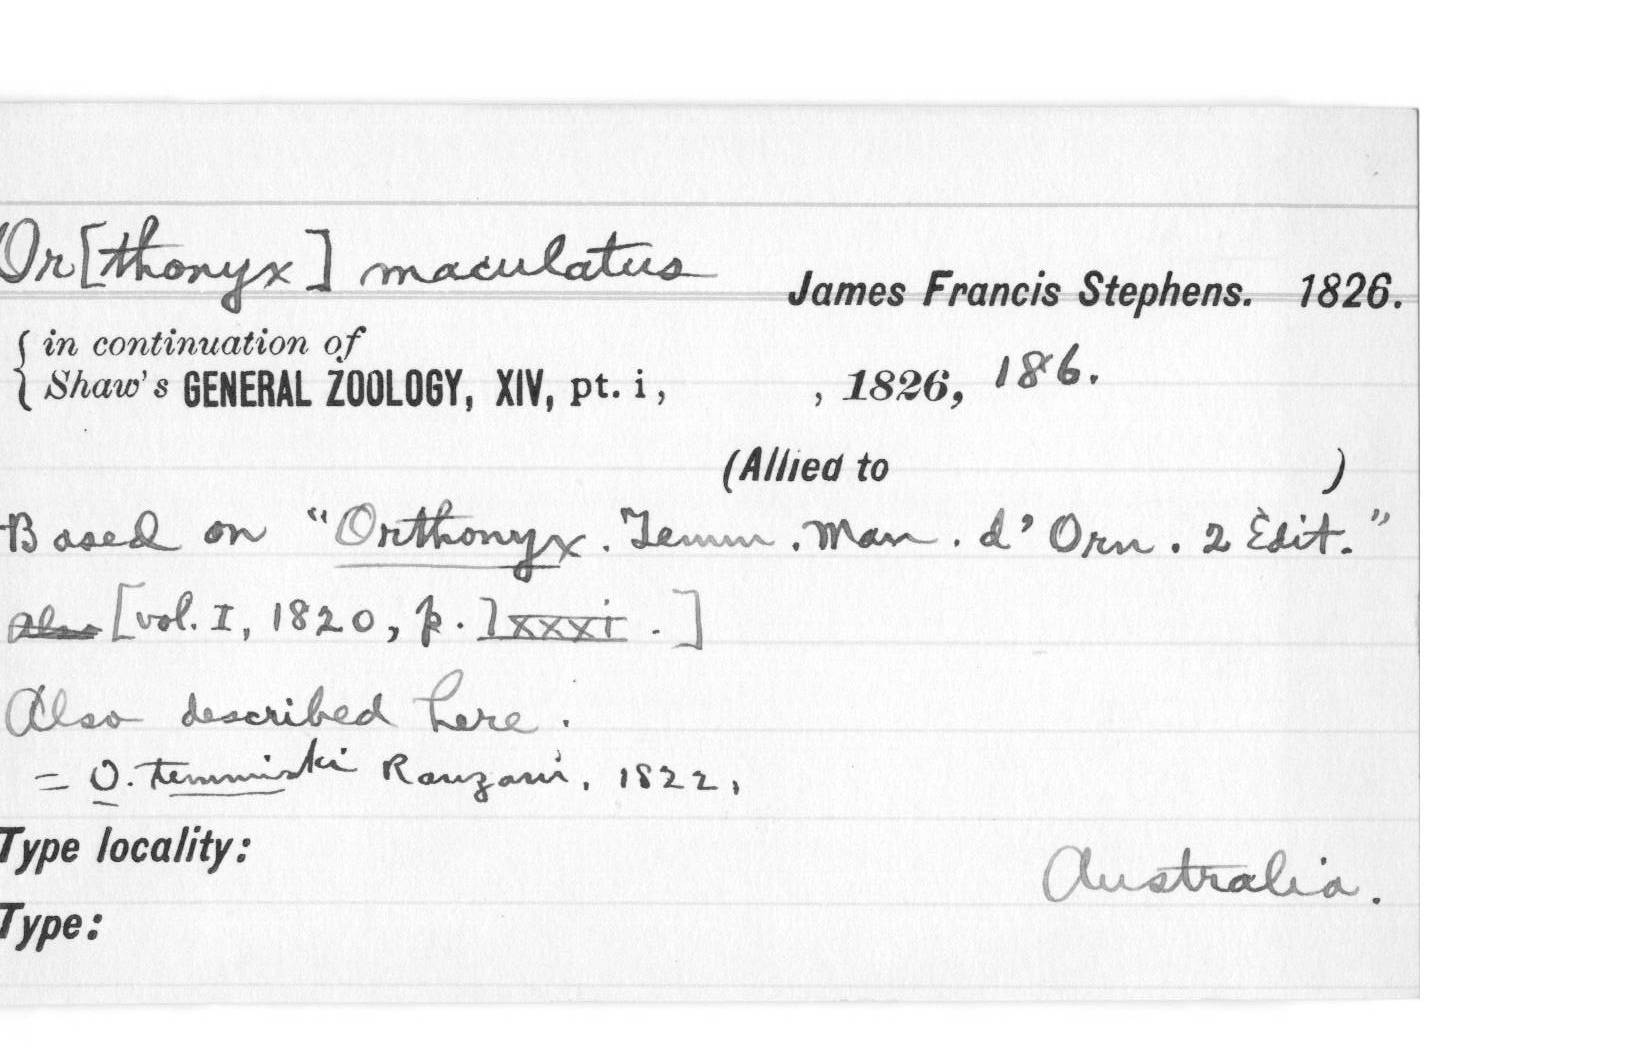 Or[thonyx] maculatus James Francis Stephens. 1826.
in continuation of
Shaw's GENERAL ZOOLOGY, XIV, pt. i, , 1826, 186.
(Allied to )
Based on "Orthonyx. Temm. Man. d'Orn. 2 Edit."
also [vol. I, 1820, p. lxxxi.]
Also described here.
= O. temminski Ranzani, 1822,
Type locality:
Australia.
Type: